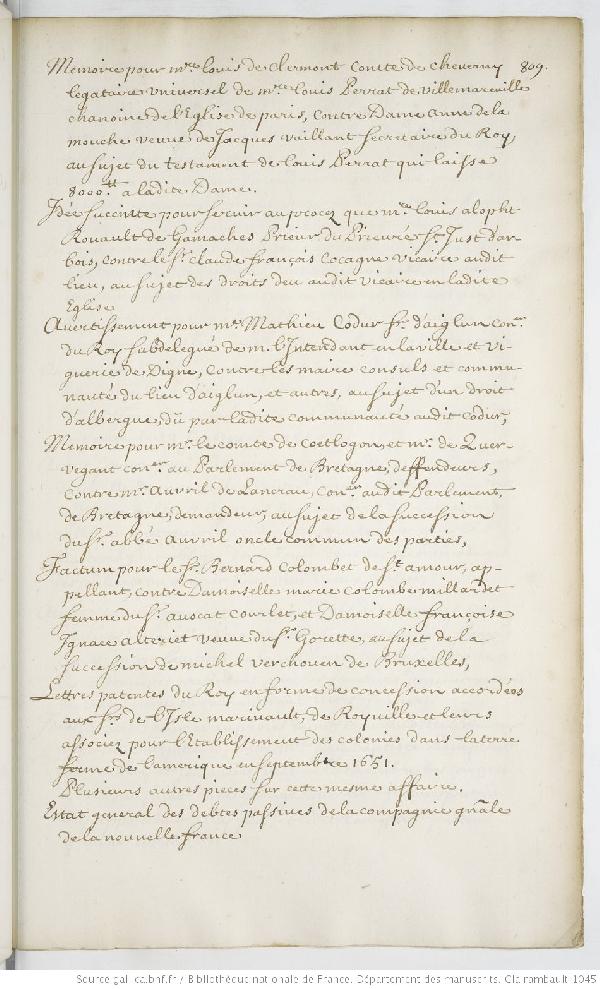 Memoire pour mre louis de clermont comte de cheverny 809.
legataire universel de mre louis Perrat de villemareville
chanoine de l'Eglise de paris, contre Dame anne de la
mouche veuve de Jacques vaillant secretaire du Roy,
au sujet du testament de louis Perrat qui laisse
8000.tt a ladite Dame.
Idée succinte pour servir au procez que mre louis alopht
Rouault de Gamaches Prieur du Prieuré St. Just d'ar-
bois, contre le Sr. claude françois Cocagne vicaire audit
lieu, au sujet des droits deu audit vicaire en ladite
Eglise
Avertissement pour mre Mathieu Codur Sr. d'aiglun conr.
du Roy subdelegué de m. l'Intendant en la ville et vi-
guerie de Digne, contre les maire consuls et commu-
nauté du lieu d'aiglun, et autres, au sujet d'un droit
d'albergue, dû par ladite communauté audit codur,
Memoire pour mr. le comte de Coetlogon, et mr. de Quer-
vegant coner. au Parlement de Bretagne, deffendeurs,
contre mr. auvril de Lancrau, coner. audit Parlement,
de Bretagne, demandeur, au sujet de la succession
du Sr. abbé auvril oncle commun des parties,
Factum pour le Sr. Bernard colombet de St. amour, ap-
pellant, contre Damoiselle marie colombe millardet
femme du Sr. avocat courlet, et Damoiselle françoise
Ignace alteriet veuve du Sr. Gorette, au sujet de la
succession de michel verchouen de Bruxelles,
Lettres patentes du Roy en forme de concession accordées
aux Srs. de l'Isle marivault, de Royville et leurs
associez pour l'Etablissement des colonies dans la terre
ferme de l'amerique en septembre 1651.
Plusieurs autres pieces sur cette mesme affaire.
Estat general des debtes passives de la compagnie gnale
de la nouvelle france
Source gallica.bnf.fr / Bibliothèque nationale de France. Département des manuscrits. Clairambault 1045